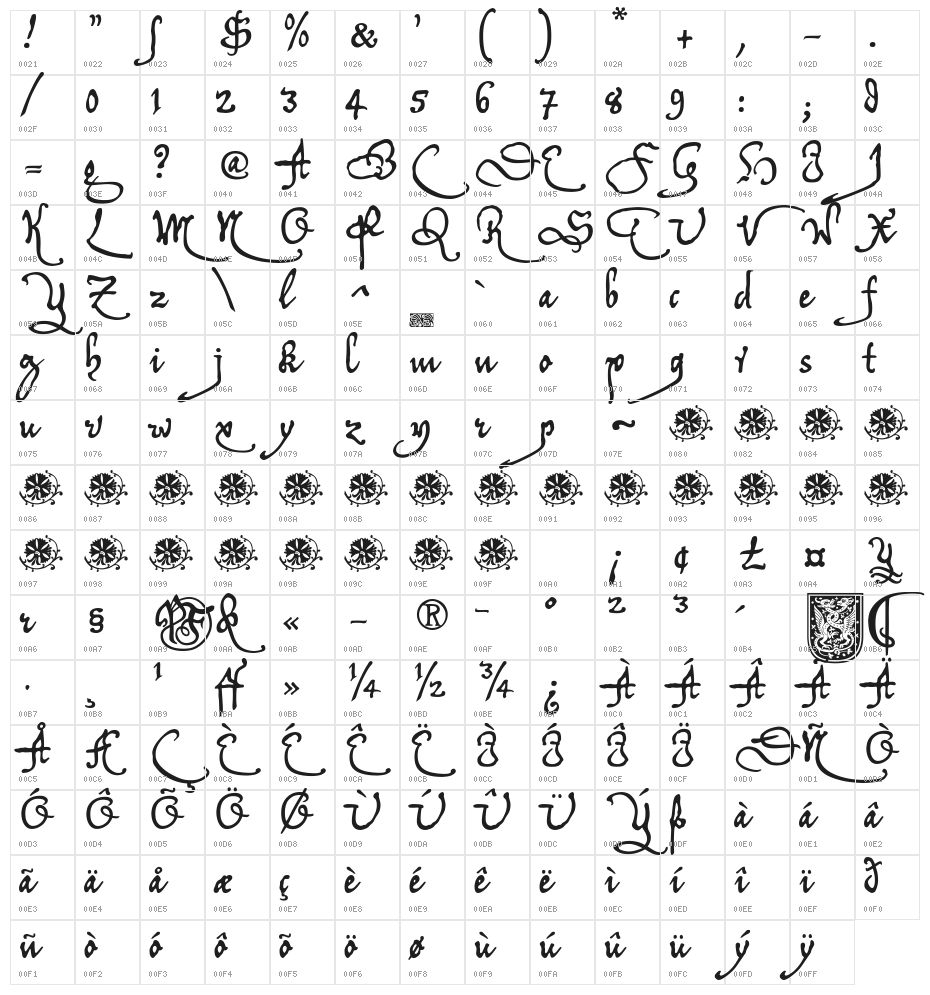 ! " ʃ $ % & ' ( ) * + , - .
0021 0022 0023 0024 0025 0026 0027 0028 0029 002A 002B 002C 002D 002E
/ 0 1 2 3 4 5 6 7 8 9 : ; ∂
002F 0030 0031 0032 0033 0034 0035 0036 0037 0038 0039 003A 003B 003C
= g ? @ A B C D E F G H I J
003D 003E 003F 0040 0041 0042 0043 0044 0045 0046 0047 0048 0049 004A
K L M N O P Q R S T U V W X
004B 004C 004D 004E 004F 0050 0051 0052 0053 0054 0055 0056 0057 0058
Y Z z \ l ^ ` a b c d e f
0059 005A 005B 005C 005D 005E 0060 0061 0062 0063 0064 0065 0066
g h i j k l m n o p q r s t
0067 0068 0069 006A 006B 006C 006D 006E 006F 0070 0071 0072 0073 0074
u v w x y z y r p ~
0075 0076 0077 0078 0079 007A 007B 007C 007D 007E 0080 0082 0084 0085
0086 0087 0088 0089 008A 008B 008C 008E 0091 0092 0093 0094 0095 0096
¡ ¢ £ ¤ ¥
0097 0098 0099 009A 009B 009C 009E 009F 00A0 00A1 00A2 00A3 00A4 00A5
r § R « - ® ¯ ° ² ³ ´
00A6 00A7 00A9 00AA 00AB 00AD 00AE 00AF 00B0 00B2 00B3 00B4 00B6
· ¸ ¹ » ¼ ½ ¾ ¿ À Á Â Ã Ä
00B7 00B8 00B9 00BA 00BB 00BC 00BD 00BE 00BF 00C0 00C1 00C2 00C3 00C4
Å Æ Ç È É Ê Ë Ì Í Î Ï Ð Ñ Ò
00C5 00C6 00C7 00C8 00C9 00CA 00CB 00CC 00CD 00CE 00CF 00D0 00D1 00D2
Ó Ô Õ Ö Ø Ù Ú Û Ü Ý ß à á â
00D3 00D4 00D5 00D6 00D8 00D9 00DA 00DB 00DC 00DD 00DF 00E0 00E1 00E2
ã ä å æ ç è é ê ë ì í î ï ð
00E3 00E4 00E5 00E6 00E7 00E8 00E9 00EA 00EB 00EC 00ED 00EE 00EF 00F0
ñ ò ó ô õ ö ø ù ú û ü ý ÿ
00F1 00F2 00F3 00F4 00F5 00F6 00F8 00F9 00FA 00FB 00FC 00FD 00FF